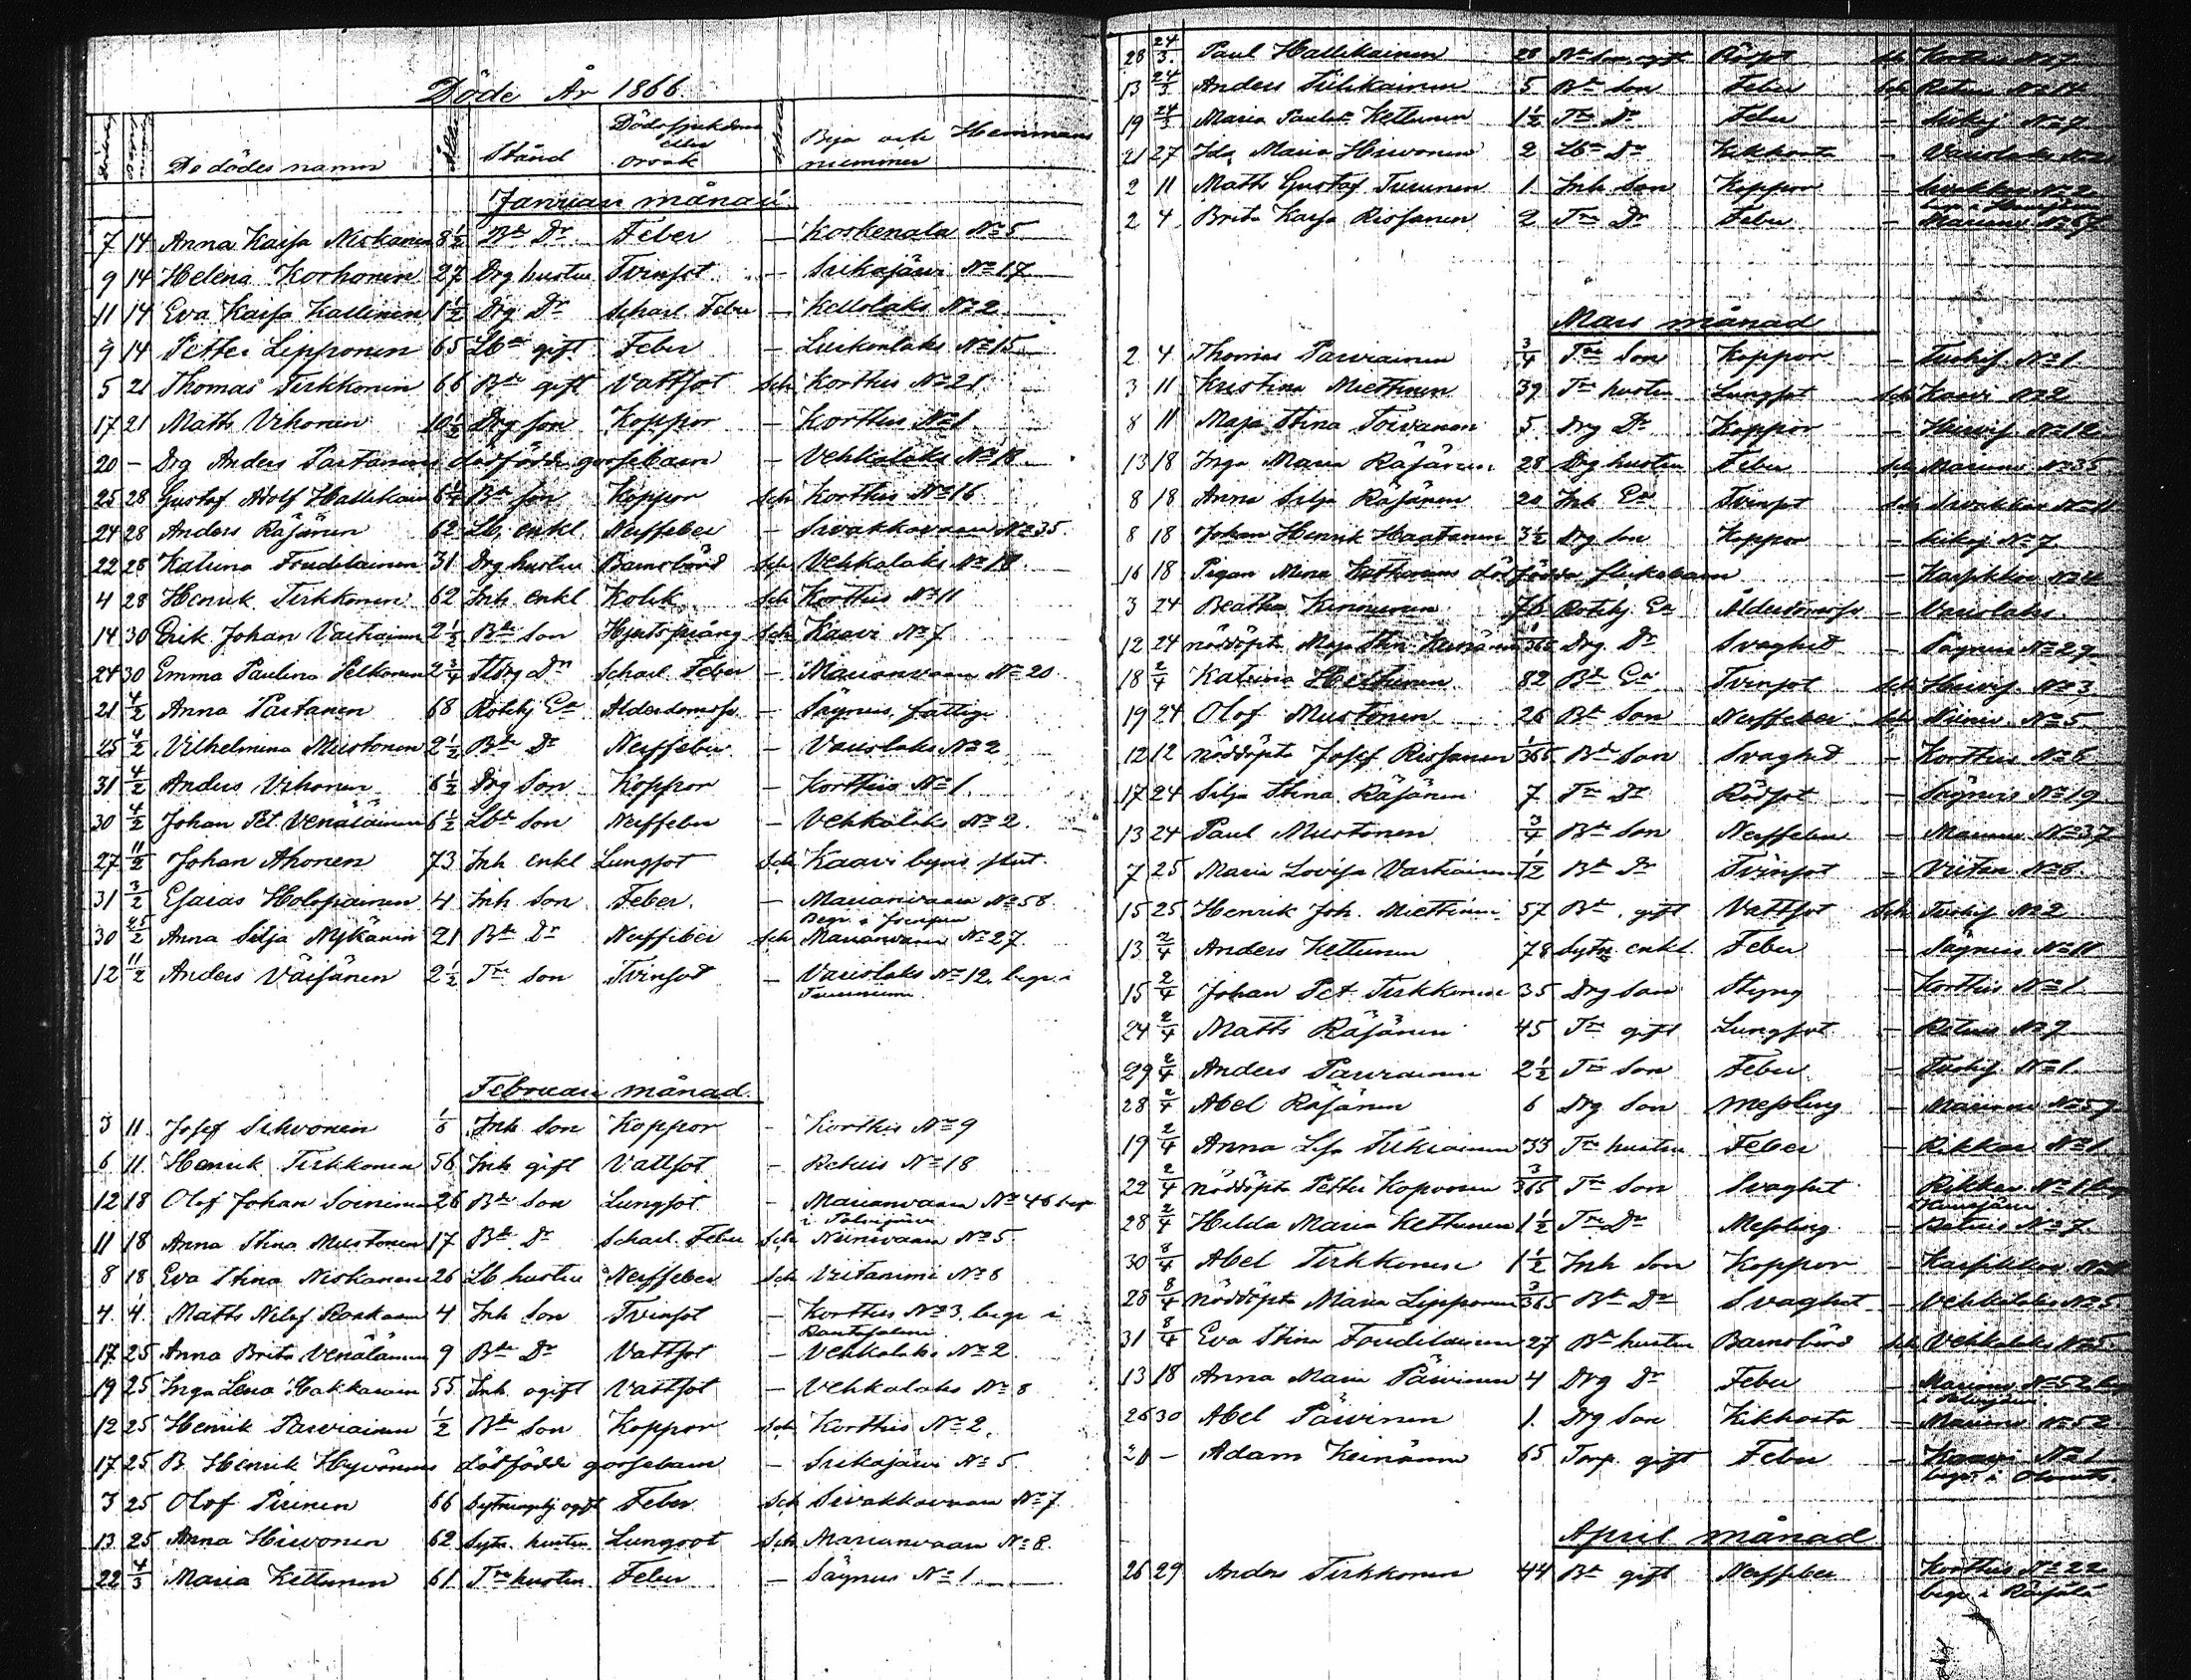 Döde År 1866.
De dödes namn Ålder Stånd Dödssjukdom eller orsak Byn och Hemmans nummer
Januari månad
7 14 Anna Kaisa Niskanen 8 1/2 Bde Dr Feber — Koskenala No 5
9 14 Helena Korhonen 27 Drg hustru Tvinsot — Siikajärvi No 17
11 14 Eva Kaisa Kallinen 1 1/2 Drg Dr Scharl. Feber — Kellolaks No 2
9 14 Petter Lipponen 65 Lbde gift Feber — No 15
5 21 Thomas Tirkkonen 66 Bde gift Vattsot Sch Korthis No 21
17 21 Matts Vihonen 10 1/2 Drg son Koppor — Korthis No 1
20 — Drg Anders Partanens dödfödde gossebarn — Vehkalaks No 18
25 28 Gustaf Adolf Hallikain 6 1/4 Bde son Koppor Sch Korthis No 16
24 28 Anders Räsänen 62 Lb. enkl. Nerffeber — Sivakkavaara No 35
22 28 Katrina Toudelainen 31 Drg hustru Barnsbörd Sch Vehkalaks No 18
4 28 Henrik Tirkkonen 62 Inh enkl Kolik Sch Korthis No 11
14 30 Erik Johan Vartiainen 2 1/2 Bde Son Hjertsprång Sch Kaavi No 7
24 30 Emma Paulina Pelkonen 2 3/4 Dr Scharl. Feber — Marianvaara No 20
21 4/2 Anna Partanen 68 Rothj Ea Ålderdomssv — Säyneis fattige
25 4/2 Vilhelmina Mustonen 2 1/2 Bde Dr Nerffeber — Vaislaks No 2
31 4/2 Anders Vihonen 6 1/2 Drg Son Koppor — Korthis No 1
30 4/2 Johan Pet. Venäläinen 6 1/2 Lbde Son Nerffeber — Vehkalaks No 2
27 11/2 Johan Ahonen 73 Inh enkl Lungsot Sch Kaavi byns
31 3/2 Esaias Holopainen 4 Inh Son Feber — Marianvaara No 58
Begr. i
30 25/2 Anna Silja Nykänen 21 Bde Dr Nerffeber Sch Marianvaara No 27
12 11/2 Anders Väisänen 2 1/2 Tre Son Tvinsot — Vaislaks No 12. begr. i
Tuusniemi
Februari månad.
3 11 Josef Sihvonen 1/6 Inh Son Koppor — Korthis No 9
6 11 Henrik Tirkkonen 56 Inh gift Vattsot — Retuis No 18
12 18 Olof Johan Soininen 26 Bde son Lungsot — Marianvaara No 46 begr
i Polvijärvi
11 18 Anna Stina Mustonen 17 Bde Dr Scharl. Feber Sch Niinivaara No 5
8 18 Eva Stina Niskanen 26 Lb hustru Nerffeber Sch Viitaniemi No 8
4 4 Matts Nilsf. 4 Inh Son Tvinsot — Korthis No 3. begr i
Rantasalmi
17 25 Anna Brita Venäläinen 9 Bde Dr Vattsot — Vehkalaks No 2
19 25 Inga Lena Hakkarain 55 Inh. ogift Vattsot — Vehkalaks No 8
12 25 Henrik Parviainen 1/2 Bde son Koppor Sch Korthis No 2.
17 25 B. Henrik Hyvönens dödfödde gossebarn — Siikajärvi No 5
3 25 Olof Pirinen 66 Sytningshj ogift Feber Sch Sivakkavaara No 7
13 25 Anna Hirvonen 62 Sytn. hustru Lungsot Sch Marianvaara No 8.
22 4/3 Maria Kettunen 61 Tre hustru Feber — Säyneis No 1
28 24/3 Paul Hallikainen 28 Bde Son ogift Rödsot Sch Korthis No 7
13 24/3 Anders Tiilikainen 5 Bde Son Feber Sch Retuis No 14
19 24/3 Maria Paulina Kettunen 1 1/2 Tre Dr Feber — Siikaj No 7
21 27 Ida Maria Hirvonen 2 Lbde Dr Kikhosta — Vaislaks No 2
2 11 Matts Gustaf Turunen 1 Inh Son Koppor — Sivakkav No 2
2 4 Brita Kaisa Rissanen 2 Tre Dr Feber — Marianv No 67
Mars månad
2 4 Thomas Parviainen 3/4 Tre Son Koppor — No 1.
3 11 Kristina Miettinen 39 Tre hustru Lungsot Sch Kaavi No 2
8 11 Maja Stina Toivanen 5 Drg Dr Koppor — No 12
13 18 Inga Maria Räsänen 28 Drg hustru Feber Sch Marianv No 35
8 18 Anna Silja Räsänen 20 Inh Ea Tvinsot Sch Sivakkav No 11
8 18 Johan Henrik Haatanen 3 1/2 Drg Son Koppor — Siikaj No 7
16 18 Pigan Mina dödfödda flickebarn —
3 24 Beatha Kinnunen 76 Rothj Ea Ålderdomssv — Vaislaks
12 24 nöddöpta Maja Stin. 1/365 Drg. Dr Svaghet — Säyneis No 27
18 2/4 Katrina Hiltunen 82 Bde Ea Tvinsot Sch No 3
19 24 Olof Mustonen 26 Bde Son Nerffeber Sch Niiniv No 5
12 12 nöddöpte Josef Rissanen 1/365 Bde Son Svaghet — Korthis No 8
17 24 Silja Stina Räsänen 7 Tre Dr Rödsot — Säyneis No 19
13 24 Paul Mustonen 3/4 Bde Son Nerffeber — Marianv No 37
7 25 Maria Lovisa Vartiainen 1/2 Bde Dr Tvinsot — Viitan No 8
15 25 Henrik Joh. Miettinen 57 Bde gift Vattsot Sch No 2
13 2/4 Anders Kettunen 78 Sytn enkl. Feber — Säyneis No 11
15 2/4 Johan Pet. Tirkkonen 35 Drg Son Styng — Korthis No 1
24 2/4 Matts Räsänen 45 Tre gift Lungsot — Retuis No 9
29 2/4 Anders Parviainen 2 1/2 Tre Son Feber — No 1
28 2/4 Abel Räsänen 6 Drg Son Messling — Marianv No 57
19 2/4 Anna Lisa 33 Tre hustru Feber — Rikkav No 1
22 2/4 nöddöpte Petter Koponen 3/365 Tre Son Svaghet Rikkav No 1
28 2/4 Hilda Maria Kettunen 1 1/2 Tre Dr Messling — Retuis No 7
30 8/4 Abel Tirkkonen 1 1/2 Inh Son Koppor —
28 8/4 nöddöpta Maria Lipponen 3/365 Bde Dr Svaghet — Vehkalaks No 5
31 8/4 Eva Stina Toudelainen 27 Bde hustru Barnsbörd Sch Vehkalaks No 5
13 18 Anna Maria Päivinen 4 Drg Dr Feber — Marianv No 52
i Polvijärvi
26 30 Abel Päivinen 1 Drg Son Kikhosta — Marianv No 52
21 — Adam Keinänen 65 Torp. gift Feber — Kaavi No 1
begr. i
April månad
26 29 Anders Tirkkonen 44 Bde gift Nerffeber Korthis No 22
begr i Räisälä